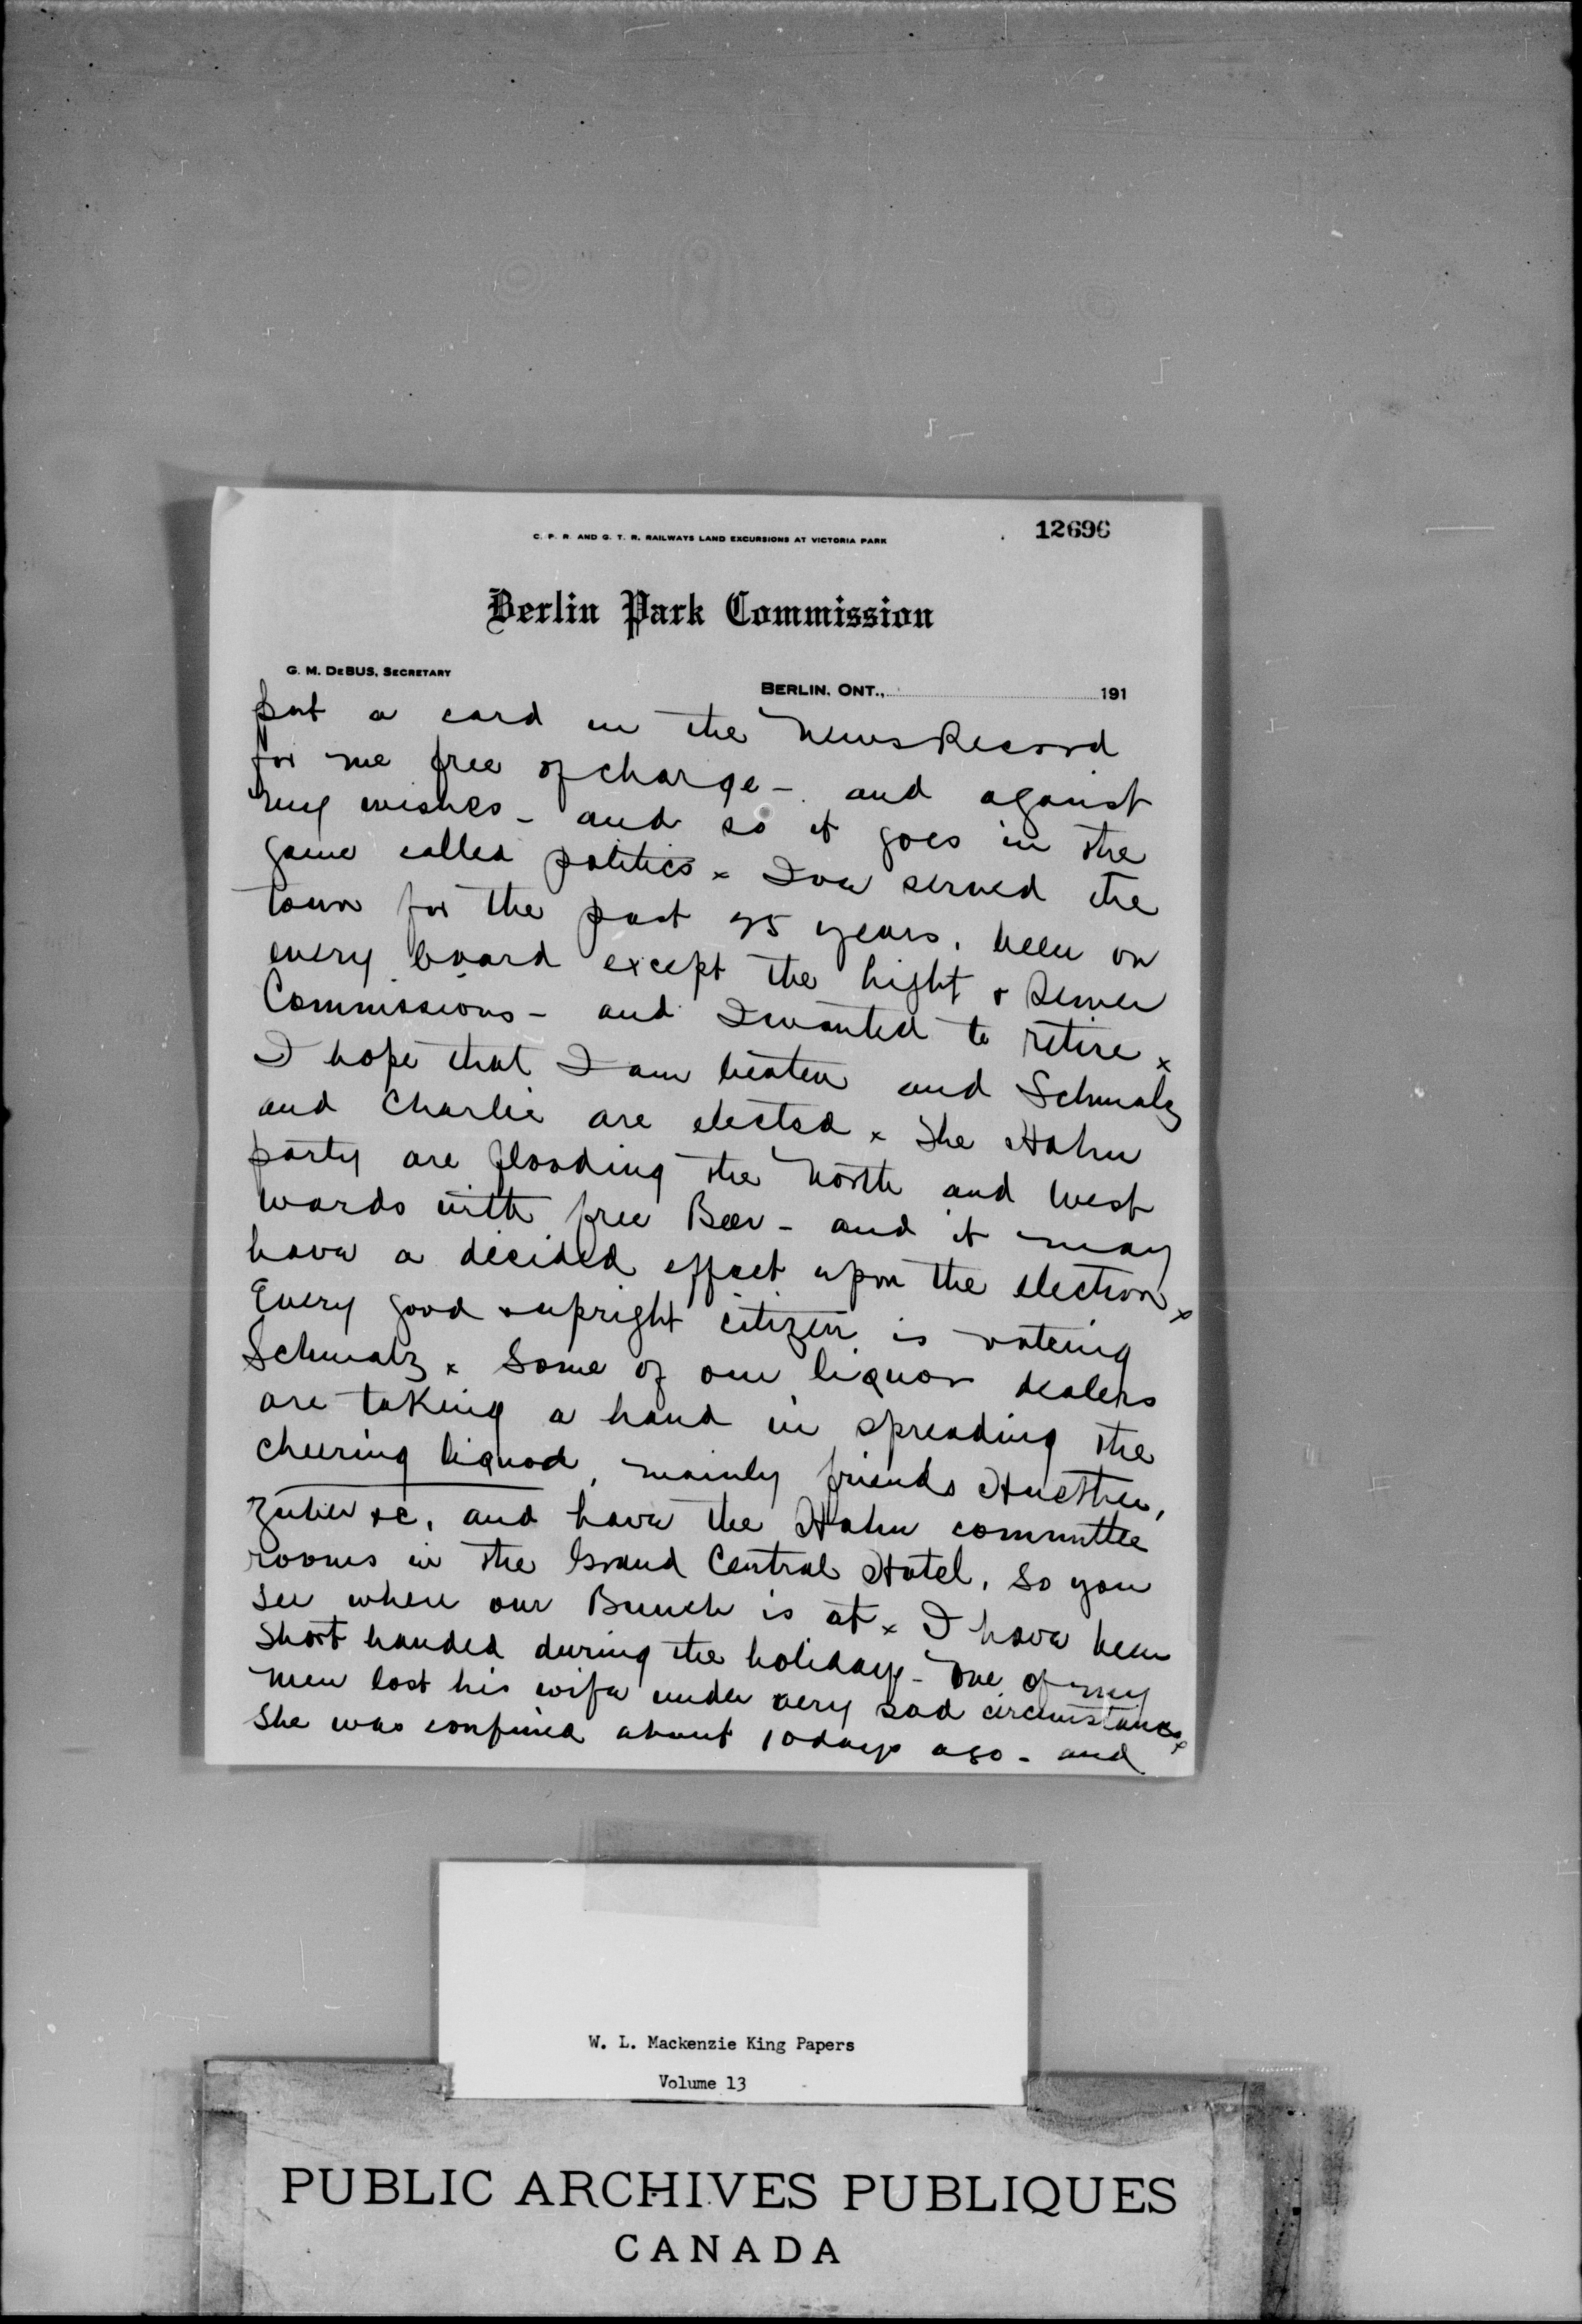 C. P. R. AND G. T. R. RAILWAYS LAND EXCURSIONS AT VICTORIA PARK
12696
Berlin Park Commission
G. M. DEBUS, SECRETARY
BERLIN, ONT., 191
put a card in the News Record
for me free of charge - and against
my wishes - and so it goes in the
game called politics x I ve served the
town for the past 25 years, been on
every board except the Light & Sewer
Commissions - and I wanted to retire x
I hope that I am beaten and Schmalz
and Charlie are elected x The Hahn
party are flooding the North and West
wards with free Beer - and it may
have a decided effect upon the election x
Every good & upright citizen is voteing
Schmalz x Some of our liquor dealers
are taking a hand in spreading the
cheering liquod, mainly friends Huether,
Zuber &c, and have the Hahn committee
rooms in the Grand Central Hotel, so you
see where our Bunch is at x I have been
short handed during the holidays - one of my
men lost his wife under very sad circumstances x
She was confined about 10 days ago - and
W. L. Mackenzie King Papers
Volume 13
PUBLIC ARCHIVES PUBLIQUES
CANADA